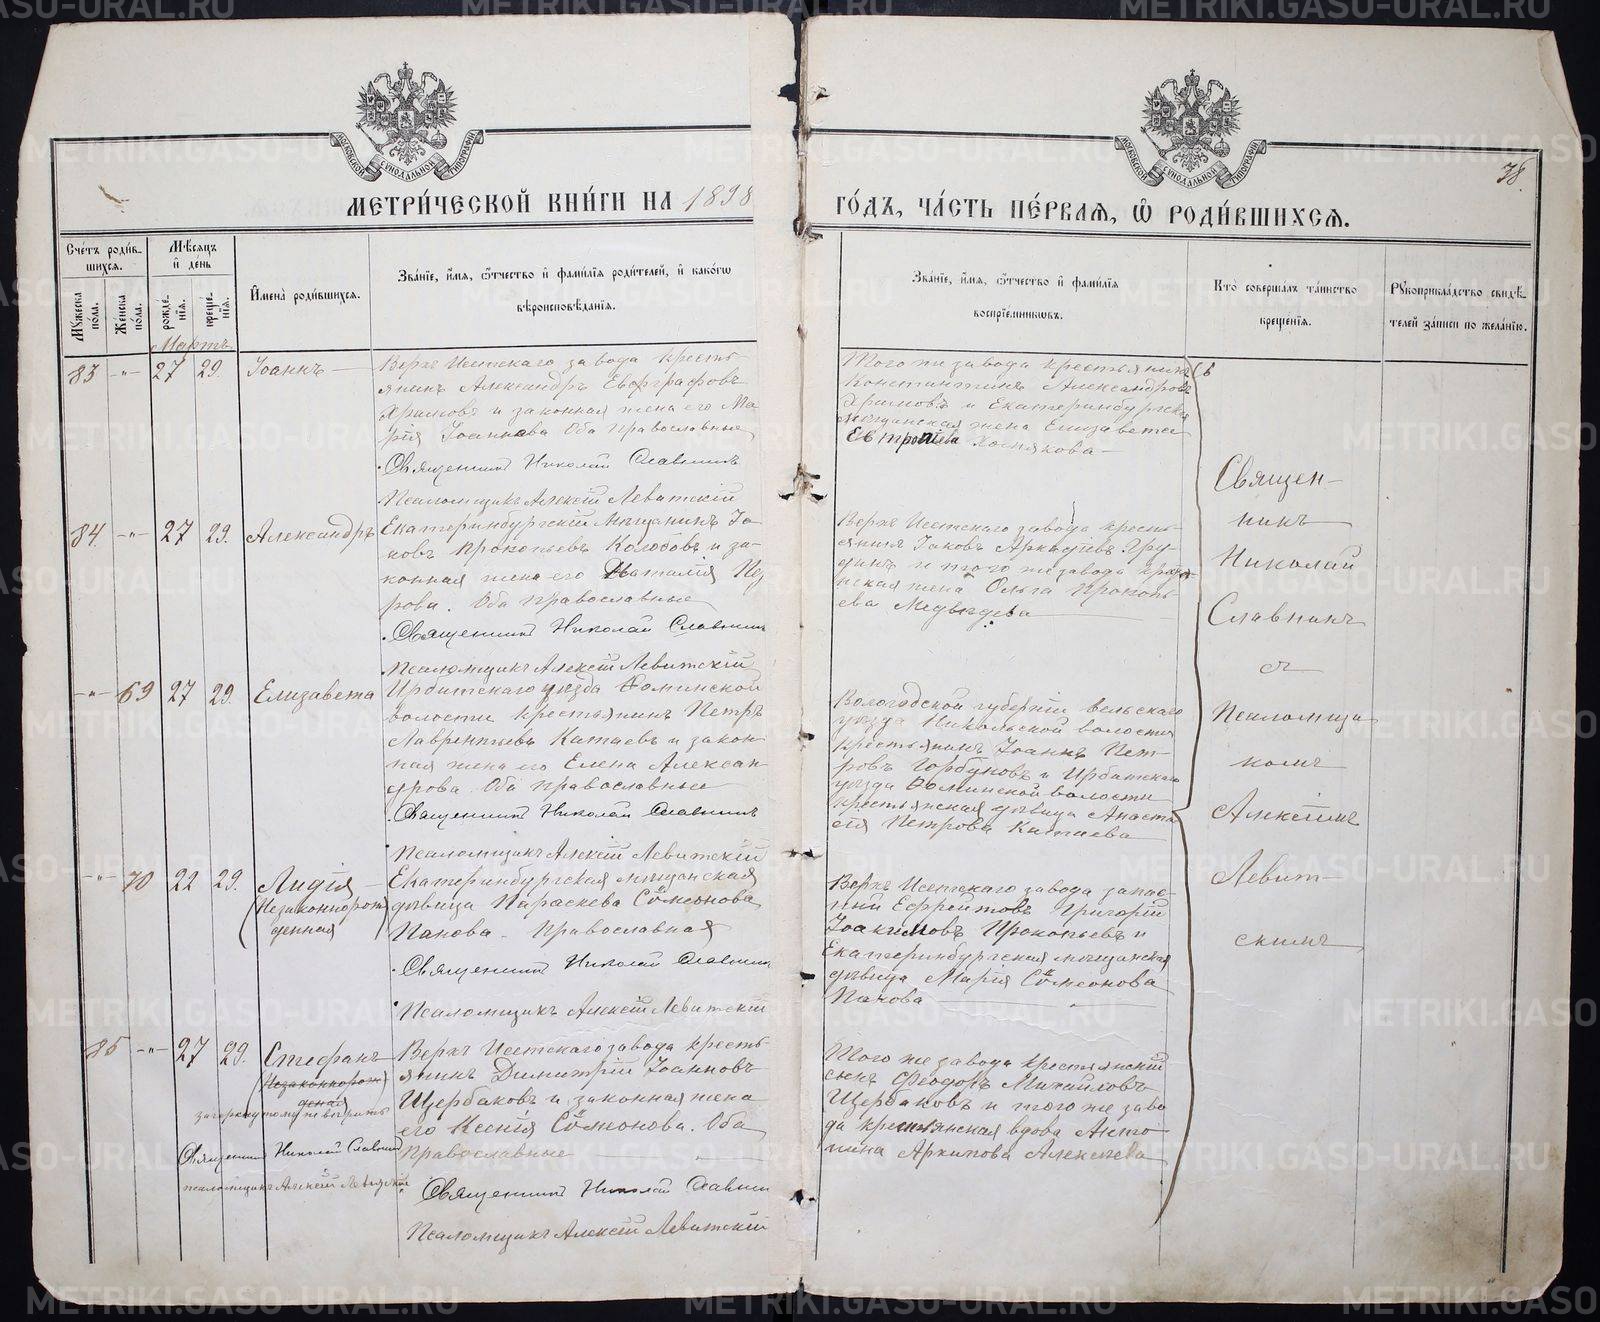 38.
МОСКОВСКОЙ СѴНОДАЛЬНОЙ ТИПОГРАФІИ
МОСКОВСКОЙ СѴНОДАЛЬНОЙ ТИПОГРАФІИ
МЕТРИ́ЧЕСКОЙ КНИ́ГИ НА 1898
ГО́ДЪ, ЧА́СТЬ ПЕ́РВАѦ, Ѡ҆ РОДИ́ВШИХСѦ.
Сче́тъ роди́в-
шихсѧ.
Мꙋжеска по́ла.
Же́нска по́ла.
Мѣ́сѧцъ и҆ де́нь
рожде́-
нїѧ.
креще́-
нїѧ.
И҆мена̀ роди́вшихсѧ.
Зва́нїе, и҆́мѧ, ѻ҆́тчество и҆ фами́лїѧ роди́телей, и҆ како́гѡ
вѣроисповѣ́данїѧ.
Зва́нїе, и҆́мѧ, ѻ҆́тчество и҆ фами́лїѧ
воспрїе́мникѡвъ.
Кто̀ соверша́лъ та́инство
креще́нїѧ.
Рꙋкоприкла́дство свидѣ́-
телей за́писи по жела́нїю.
Мартъ
83 -"- 27 29. Іоаннъ
Верхъ Исетскаго завода кресть-
янинъ Александръ Евграфовъ
Храмовъ и законная жена его Ма
рія Іоаннова Оба православные
Священникъ Николай Славнинъ
Псаломщикъ Алексій Левитскій
Того же завода крестьянинъ
Константинъ Александровъ
Храмовъ и Екатеринбургская
мѣщанская жена Елизавета
Евтропіева Хомякова
84. -"- 27 29. Александръ
Екатеринбургскій мѣщанинъ Іа-
ковъ Прокопьевъ Колобовъ и за-
конная жена его Наталія
рова. Оба православные
Священникъ Николай Славнинъ
Псаломщикъ Алексій Левитскій
Верхъ Исетскаго завода кресть-
янинъ Іаковъ Аркадіевъ Гру-
динъ и того же завода
нская жена Ольга Прокопь-
ева Медвѣдева
-"- 69 27 29. Елизавета
Ирбитскаго уѣзда Фоминской
волости крестьянинъ Петръ
Лаврентьевъ Катаевъ и закон-
ная жена его Елена Алексан-
дрова. Оба православные
Священникъ Николай Славнинъ
Псаломщикъ Алексій Левитскій
Вологодской губерніи вельскаго
уѣзда Никольской волости
крестьянинъ Іоаннъ Пет-
ровъ Горбуновъ и Ирбитскаго
уѣзда Фоминской волости
крестьянская дѣвица Анаста
сія Петрова Катаева
-"- 70 22 29. Лидія
(Незаконнорож
денная)
Екатеринбургская мѣщанская
дѣвица Параскева Сѵмеонова
Панова. Православная
Священникъ Николай Славнинъ
Псаломщикъ Алексій Левитскій
Верхъ Исетскаго завода запас-
ный Ефрейторъ Григорій
Іоакимовъ Прокопьевъ и
Екатеринбургская мѣщанская
дѣвица Марія Сѵмеонова
Панова
85 -"- 27 29. Стефанъ
(Незаконнорож
денная)
зачеркнутому не вѣрить
Священникъ Николай Славнинъ
псаломщикъ Алексій Левитскій
Верхъ Исетскаго завода кресть-
янинъ Димитрій Іоанновъ
Щербаковъ и законная жена
его Ксенія Сѵмеонова. Оба
православные
Священникъ Николай Славнин
Псаломщикъ Алексій Левитскій
Того же завода крестьянскій
сынъ Феодоръ Михайловъ
Щербаковъ и того же заво
да крестьянская вдова Анто-
нина Архипова Алексѣева
Священ-
никъ
Николай
Славнинъ
съ
Псаломщи
комъ
Алексіемъ
Левит-
скимъ
METRIKI.GASO-URAL.RU